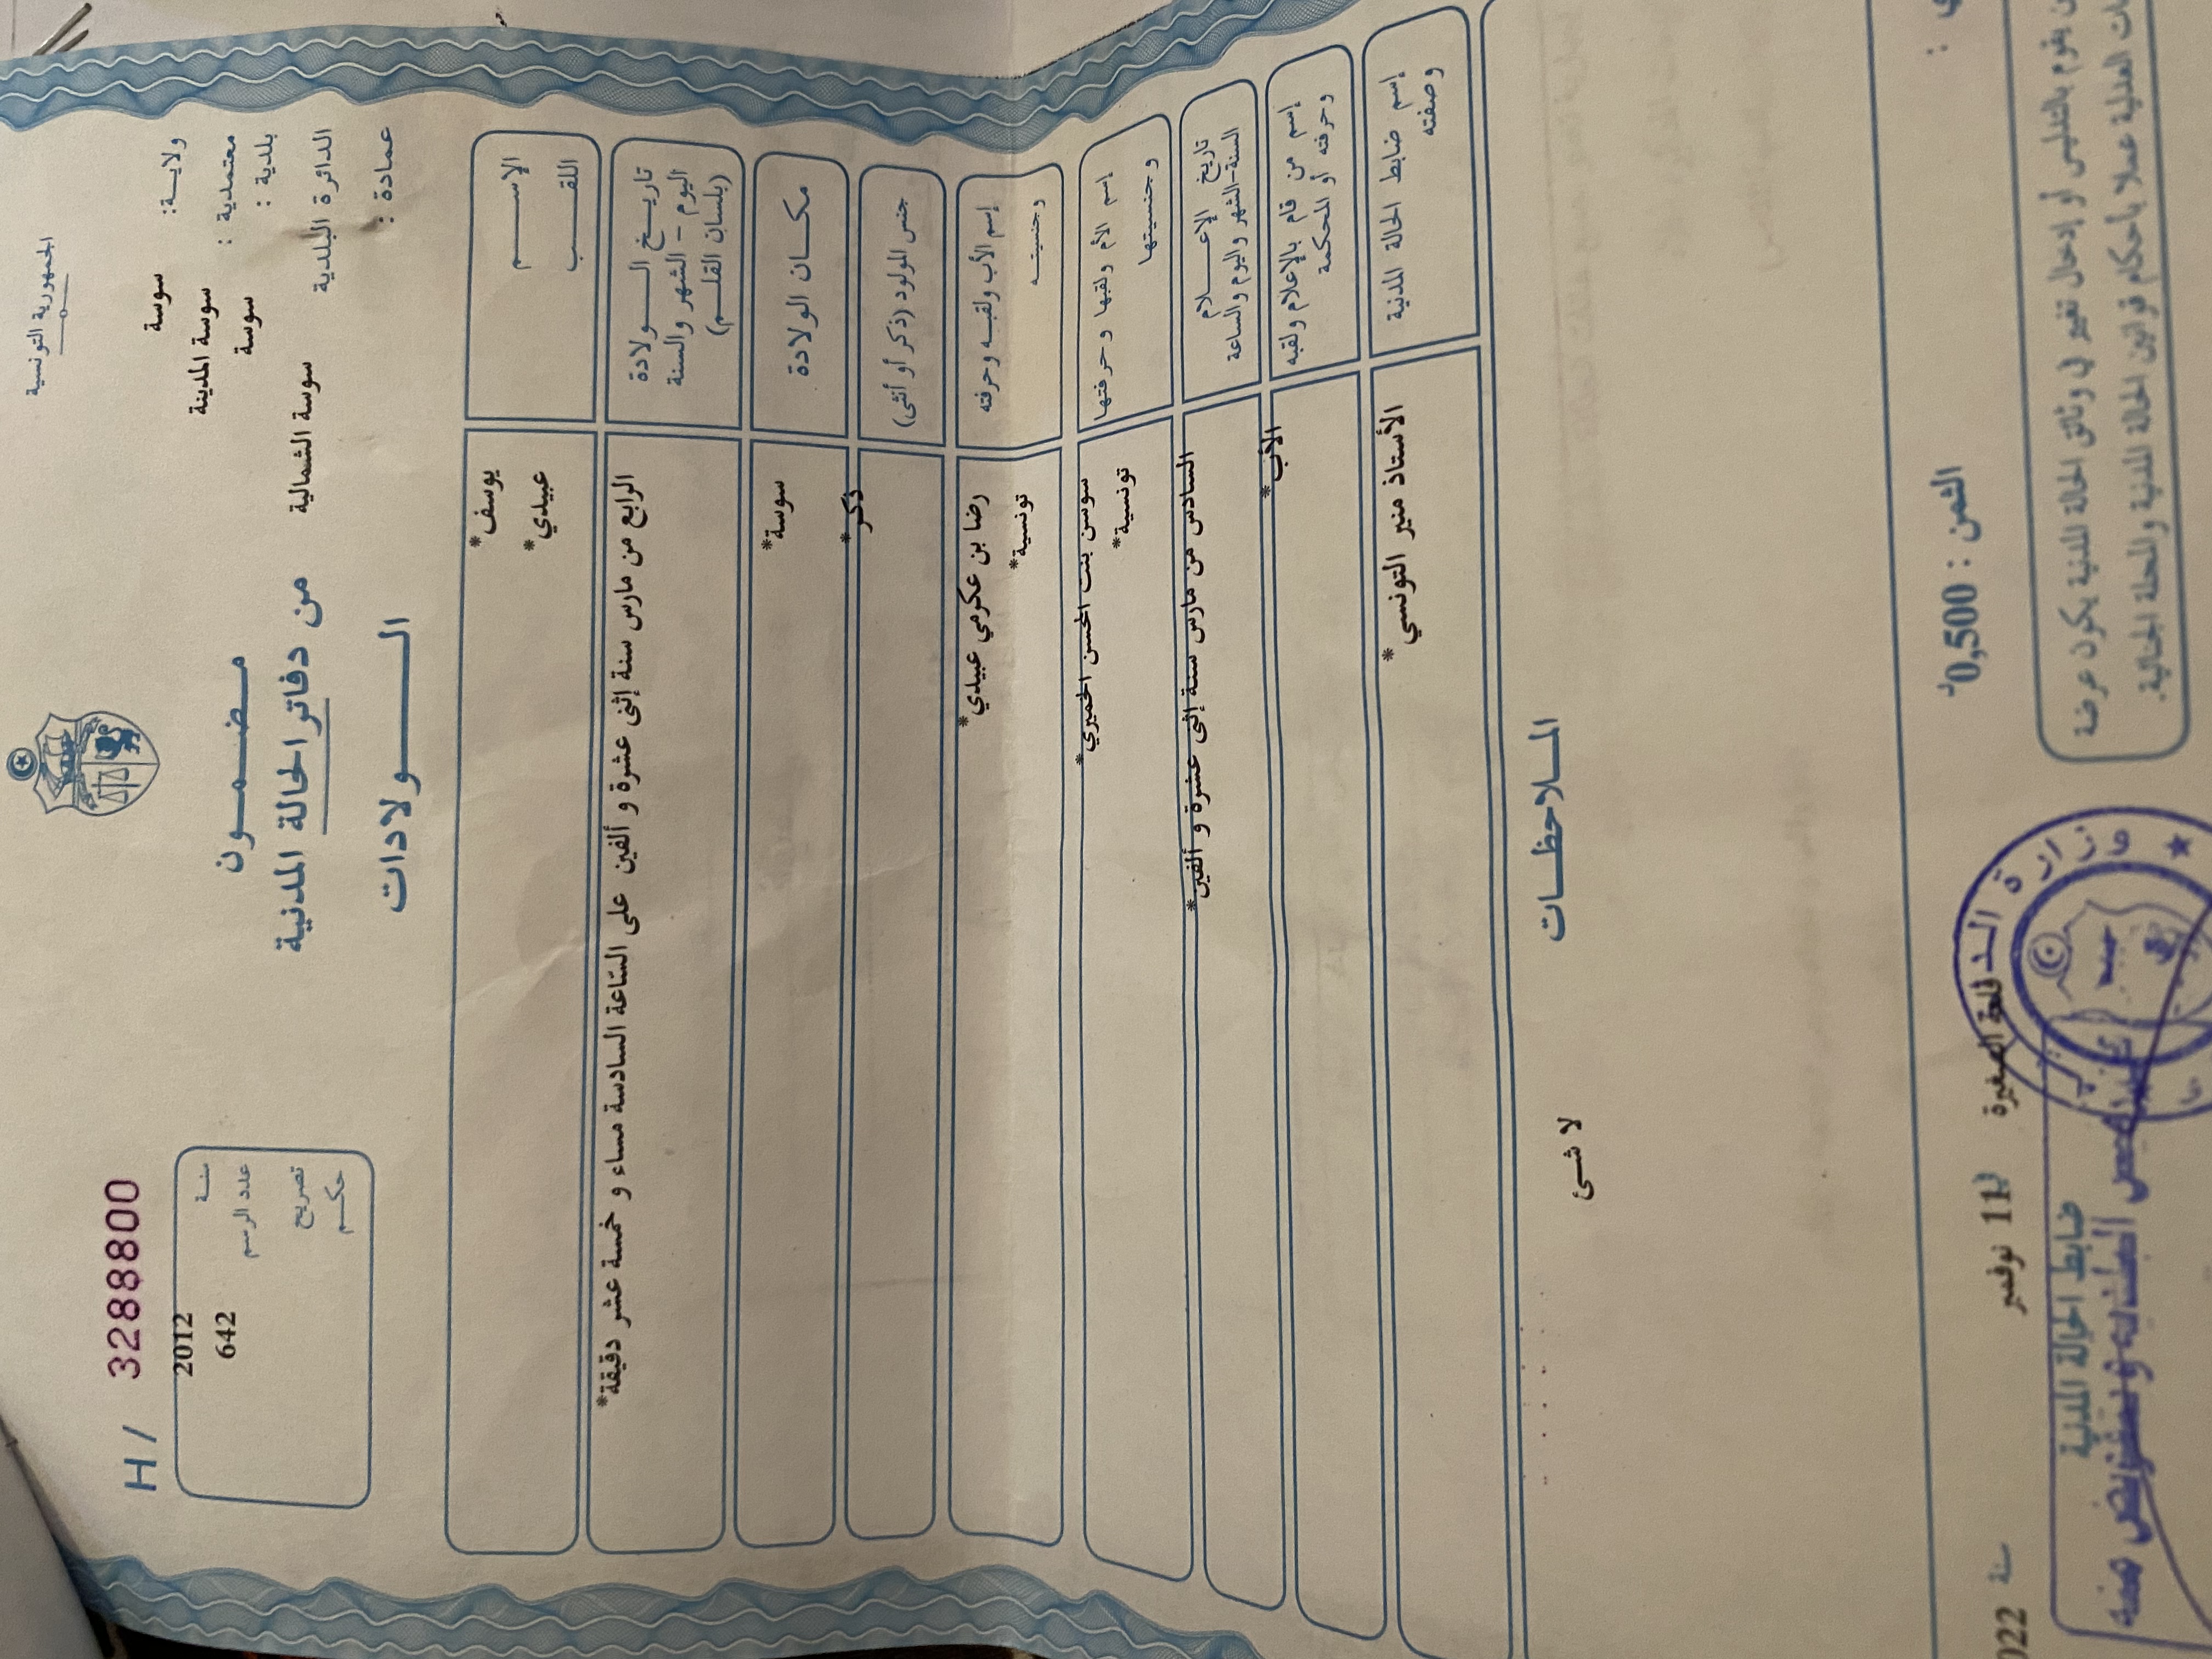 الجمهورية التونسية
ولاية: سوسة
معتمدية : سوسة المدينة
بلدية : سوسة
الدائرة البلدية سوسة الشمالية
عمادة :
H / 3288800
سنة 2012
عدد الرسم 642
تصريح
حكم
مضمون
من دفاتر الحالة المدنية
الولادات
الإسم يوسف*
اللقب عبيدي*
تاريخ الولادة
اليوم - الشهر والسنة
(بلسان القلم)
الرابع من مارس سنة إثنى عشرة و ألفين على السّاعة السادسة مساء و خمسة عشر دقيقة*
مكان الولادة سوسة*
جنس المولود (ذكر أو أنثى) ذكر*
إسم الأب ولقبه وحرفته رضا بن عكومي عبيدي*
وجنسيته تونسية*
إسم الأم ولقبها وحرفتها سوسن بنت الحسن الخميري*
وجنسيتها تونسية*
تاريخ الإعلام
السنة-الشهر واليوم والساعة
السادس من مارس سنة إثنى عشرة و ألفين*
إسم من قام بالإعلام ولقبه
وحرفته أو المحكمة
الأب*
إسم ضابط الحالة المدنية
وصفته
الأستاذ منير التونسي*
الملاحظات
لا شئ
الثمن : 0,500د
القلعة الصغيرة 11 نوفمبر سنة
ضابط الحالة المدنية
يقوم بالتدليس أو إدخال تغيير في وثائق الحالة المدنية يكون عرضة
العدلية عملا بأحكام قوانين الحالة المدنية والمجلة الجنائية.